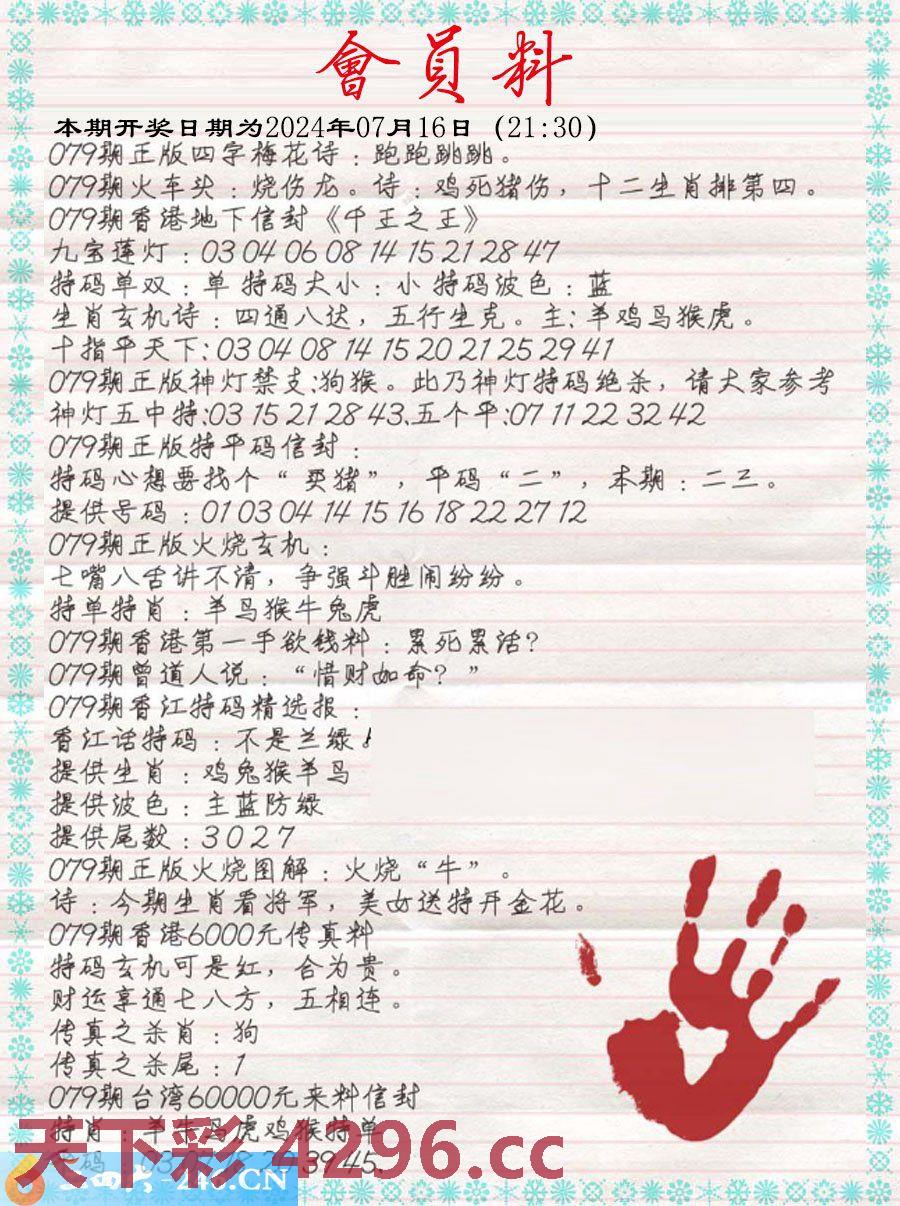 會員料
本期开奖日期为2024年07月16日 (21:30)
079期正版四字梅花诗：跑跑跳跳。
079期火车头：烧伤龙。诗：鸡死猪伤，十二生肖排第四。
079期香港地下信封《千王之王》
九宝莲灯：03 04 06 08 14 15 21 28 47
特码单双：单 特码大小：小 特码波色：蓝
生肖玄机诗：四通八达，五行生克。主:羊鸡马猴虎。
十指平天下:03 04 08 14 15 20 21 25 29 41
079期正版神灯禁支:狗猴。此乃神灯特码绝杀，请大家参考
神灯五中特:03 15 21 28 43.五个平:07 11 22 32 42
079期正版特平码信封：
特码心想要找个“买猪”，平码“二”，本期：二三。
提供号码：01 03 04 14 15 16 18 22 27 12
079期正版火烧玄机：
七嘴八舌讲不清，争强斗胜闹纷纷。
特单特肖：羊马猴牛兔虎
079期香港第一手欲钱料：累死累活?
079期曾道人说：“惜财如命？”
079期香江特码精选报：
香江话特码：不是兰绿
提供生肖：鸡兔猴羊马
提供波色：主蓝防绿
提供尾数：3 0 2 7
079期正版火烧图解：火烧“牛”。
诗：今期生肖看将军，美女送特开金花。
079期香港6000元传真料
特码玄机可是红，合为贵。
财运享通七八方，五相连。
传真之杀肖：狗
传真之杀尾：1
079期台湾60000元来料信封
特肖：羊牛马虎鸡猴特单
39 45.
天下彩 4296.cc
246.CN